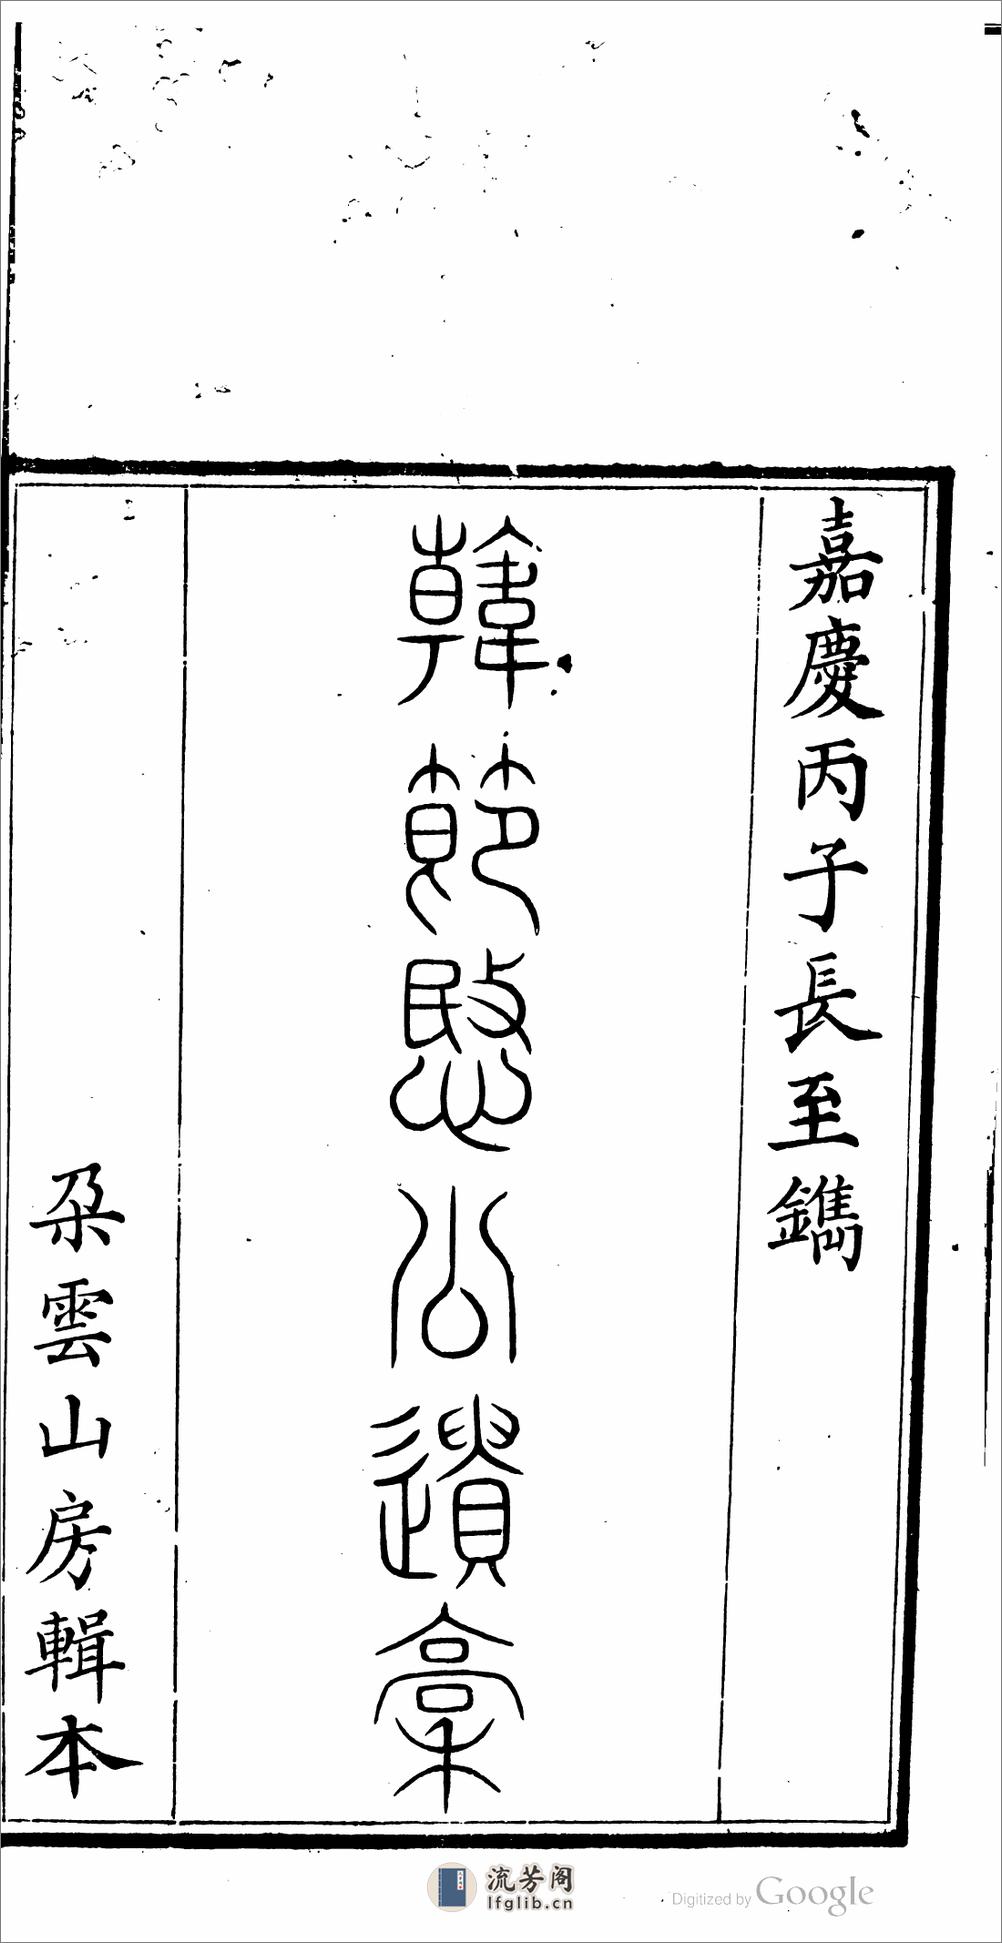 嘉慶丙子長至鐫
韓節愍公遺稾
朶雲山房輯本
流芳阁
lfglib.cn
Digitized by Google